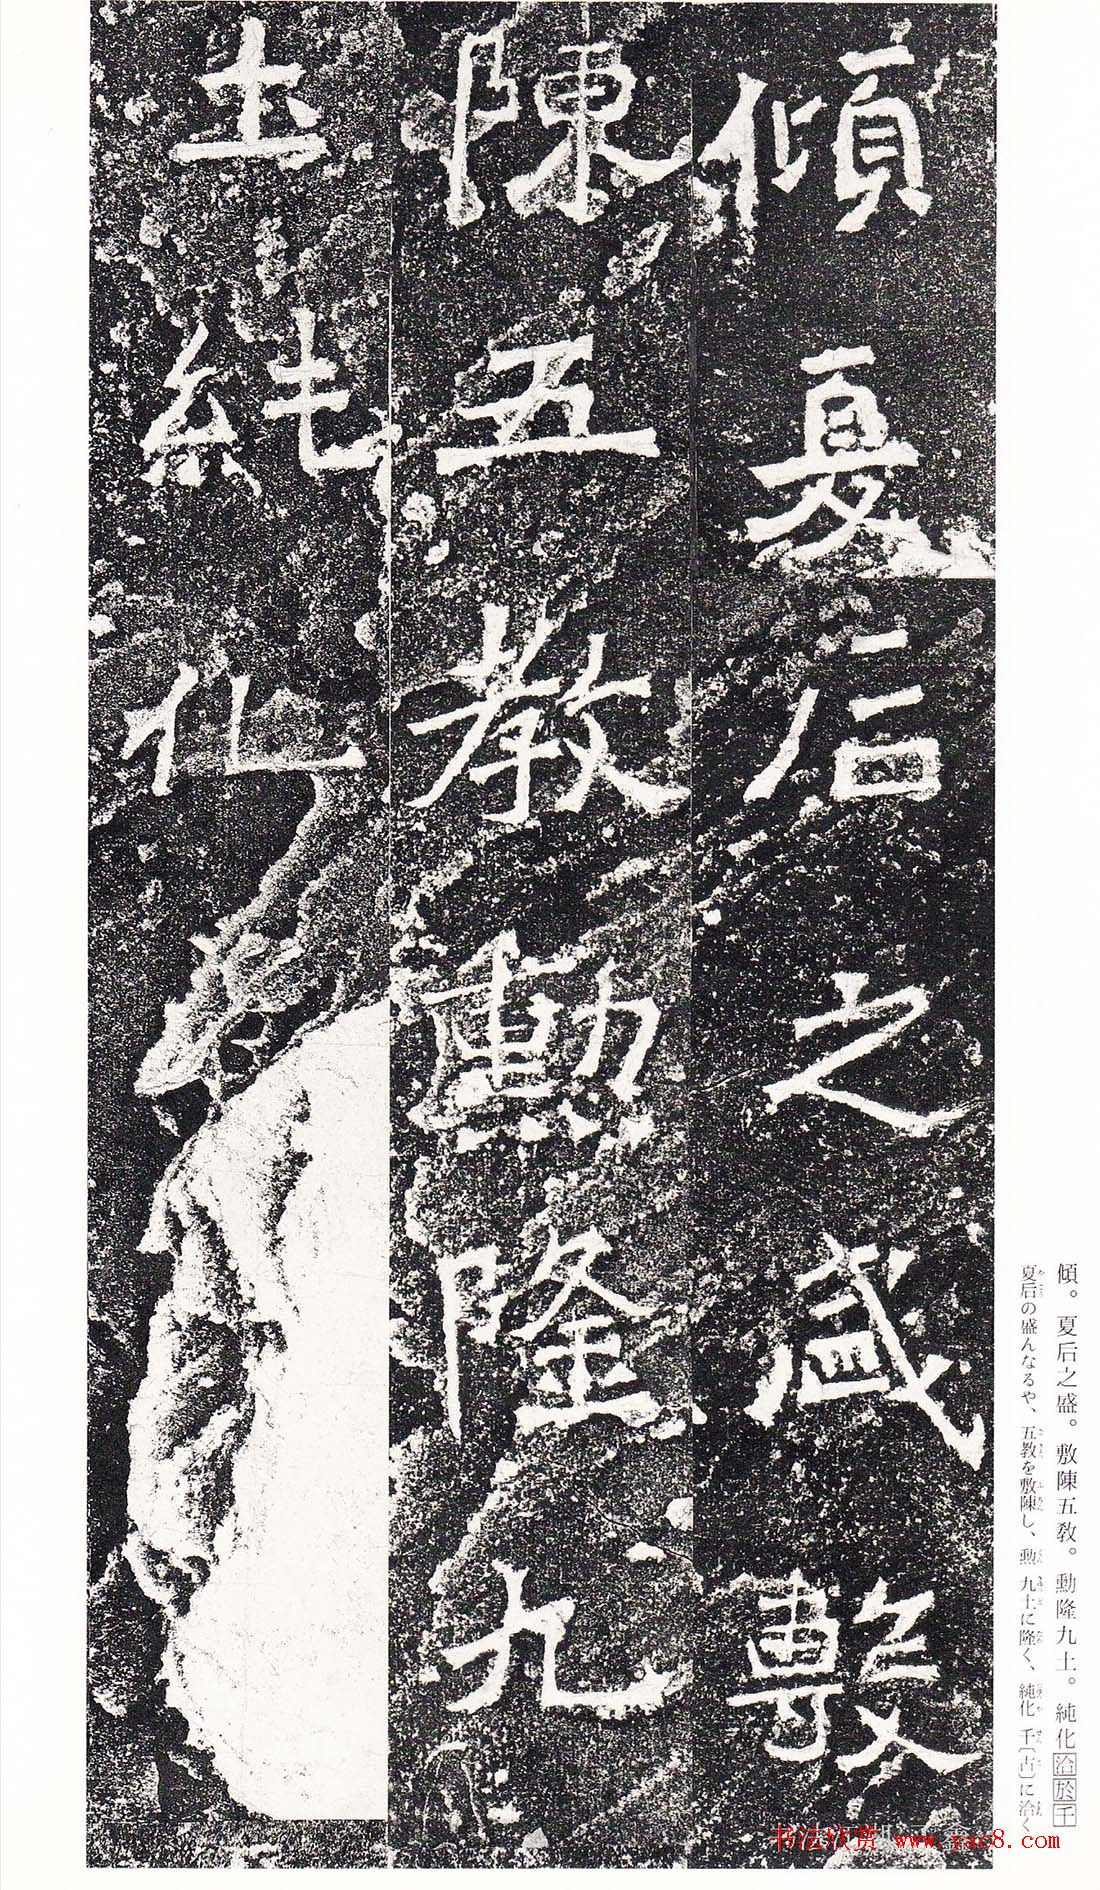 傾夏后之盛敷
陳五教勲隆九
土純化
傾。夏后之盛。敷陳五教。勳隆九土。純化洽於千
夏后の盛んなるや、五教を敷陳し、勲 九土に隆く、純化 千〔古〕に洽く
书法欣赏 www.yac8.com